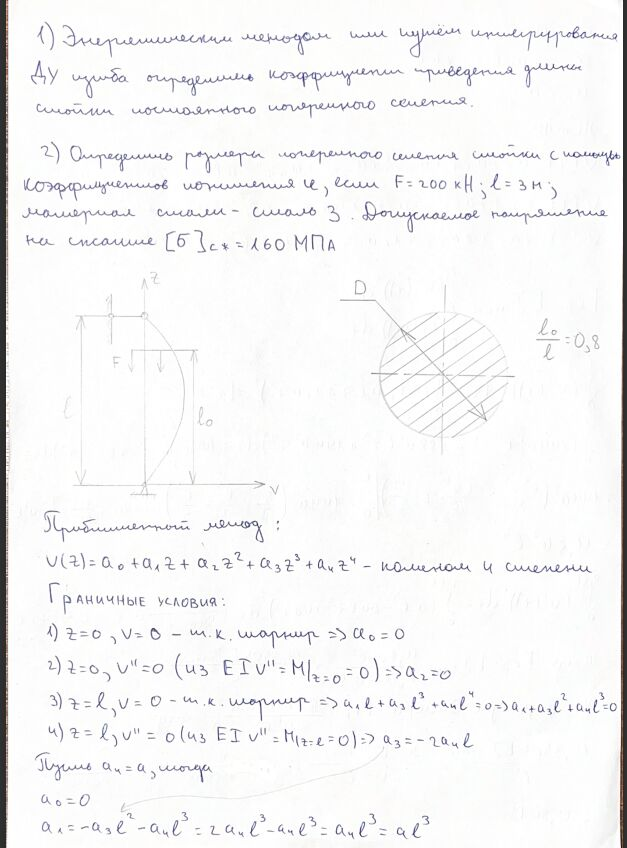 1) Энергетическим методом или путём интегрирования
ДУ изгиба определить коэффициент приведения длины
стойки постоянного поперечного сечения.
2) Определить размеры поперечного сечения стойки с помощью
коэффициентов понижения φ, если F=200 кН; l=3м;
материал стали - сталь 3. Допускаемое напряжение
на сжатие [σ]сж=160 МПа
z
D
l₀/l=0,8
F
l
l₀
v
Приближенный метод:
v(z)=a₀+a₁z+a₂z²+a₃z³+a₄z⁴ - полином 4 степени
Граничные условия:
1) z=0, v=0 - т.к. шарнир => a₀=0
2) z=0, v''=0 (из EIv''=M|z=0=0) => a₂=0
3) z=l, v=0 - т.к. шарнир => a₁l+a₃l³+a₄l⁴=0 => a₁+a₃l²+a₄l³=0
4) z=l, v''=0 (из EIv''=M|z=l=0) => a₃=-2a₄l
Пусть a₄=a, тогда
a₀=0
a₁=-a₃l²-a₄l³=2a₄l³-a₄l³=a₄l³=al³